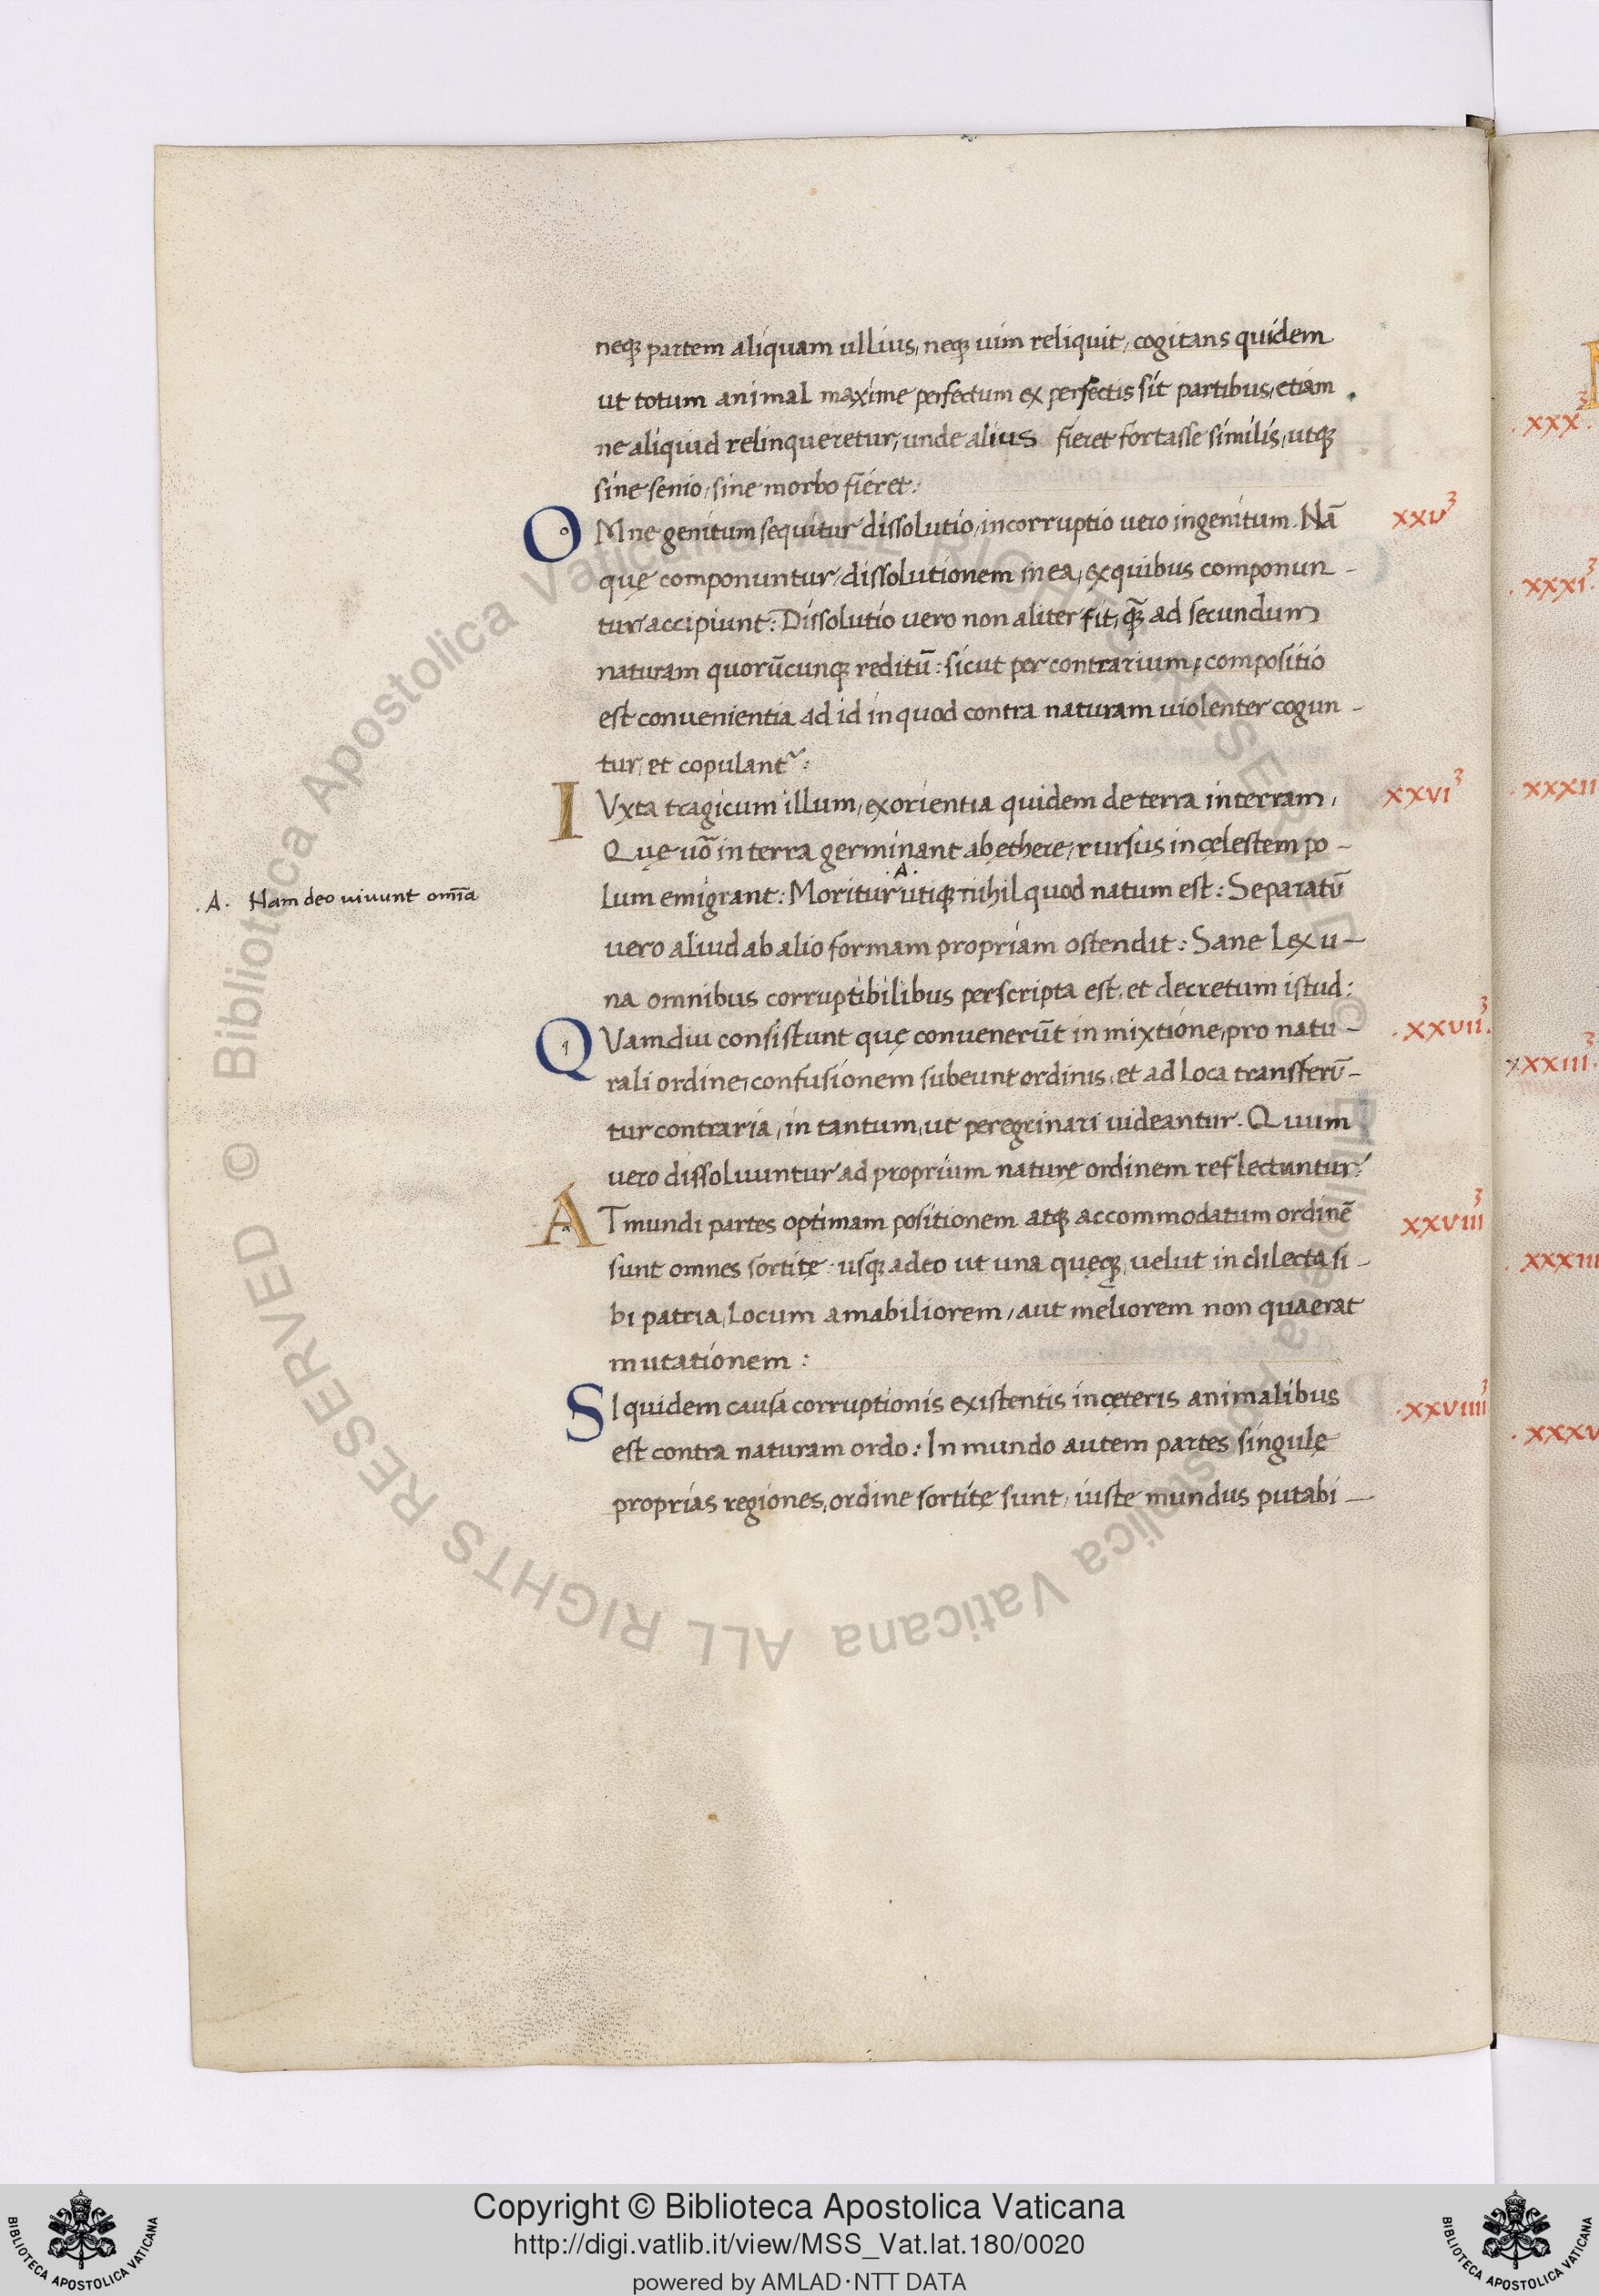 neq; partem aliquam ullius, neq; uim reliquit, cogitans quidem
ut totum animal maxime perfectum ex perfectis sit partibus, etiam
ne aliquid relinqueretur, unde alius fieret fortasse similis, utq;
sine senio, sine morbo fieret:
OMne genitum sequitur dissolutio, incorruptio uero ingenitum. Nā
quę componuntur, dissolutionem in ea, ex quibus componun-
tur accipiunt: Dissolutio uero non aliter fit, q̄ ad secundum
naturam quorūcunq; reditū: sicut per contrarium, compositio
est conuenientia ad id in quod contra naturam uiolenter cogun-
tur, et copulantᷣ:
IVxta tragicum illum, exorientia quidem de terra in terram,
Quę uō in terra germinant ab ęthere, rursus in cęlestem po-
.A.
lum emigrant: Moritur utiq; nihil quod natum est: Separatū
uero aliud ab alio formam propriam ostendit: Sane Lex u-
na omnibus corruptibilibus perscripta est, et decretum istud:
QVamdiu consistunt quę conuenerūt in mixtione, pro natu-
rali ordine, confusionem subeunt ordinis, et ad loca transferū-
tur contraria, in tantum, ut peregrinari uideantur. Quum
uero dissoluuntur ad proprium naturę ordinem reflectuntur:
ATmundi partes optimam positionem atq; accommodatum ordinē
sunt omnes sortitę: usq; adeo ut una quęq; uelut in dilecta si-
bi patria, Locum amabiliorem, aut meliorem non quaerat
mutationem:
SIquidem causa corruptionis existentis in cęteris animalibus
est contra naturam ordo: In mundo autem partes singulę
proprias regiones, ordine sortitę sunt, iuste mundus putabi-
.A. Nam deo uiuunt om̄ia
xxv³
xxvi³
.xxvii³.
xxviii³
.xxviiii³
.xxx³.
.xxxi³.
.xxxii
xxxiii³.
.xxxiii
.xxxv
© Biblioteca Apostolica Vaticana ALL RIGHTS RESERVED © Biblioteca Apostolica Vaticana ALL RIGHTS RESERVED
Copyright © Biblioteca Apostolica Vaticana
http://digi.vatlib.it/view/MSS_Vat.lat.180/0020
powered by AMLAD·NTT DATA
BIBLIOTECA APOSTOLICA VATICANA
BIBLIOTECA APOSTOLICA VATICANA